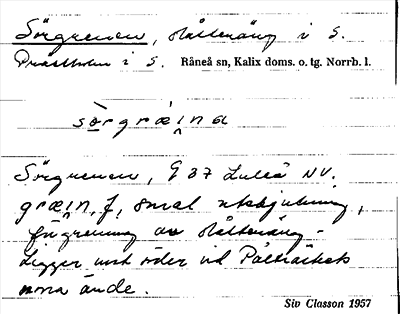 Sörgrenen, slåtteräng i S.
Prästholm i S. Råneå sn, Kalix doms. o. tg. Norrb. l.
sörgræina
Sörgrenen, G 37 Luleå NV.
græin, f, smal utskjutning,
förgrening av slåtteräng.
Ligger mot öster vid
norra ände.
Siv Classon 1957